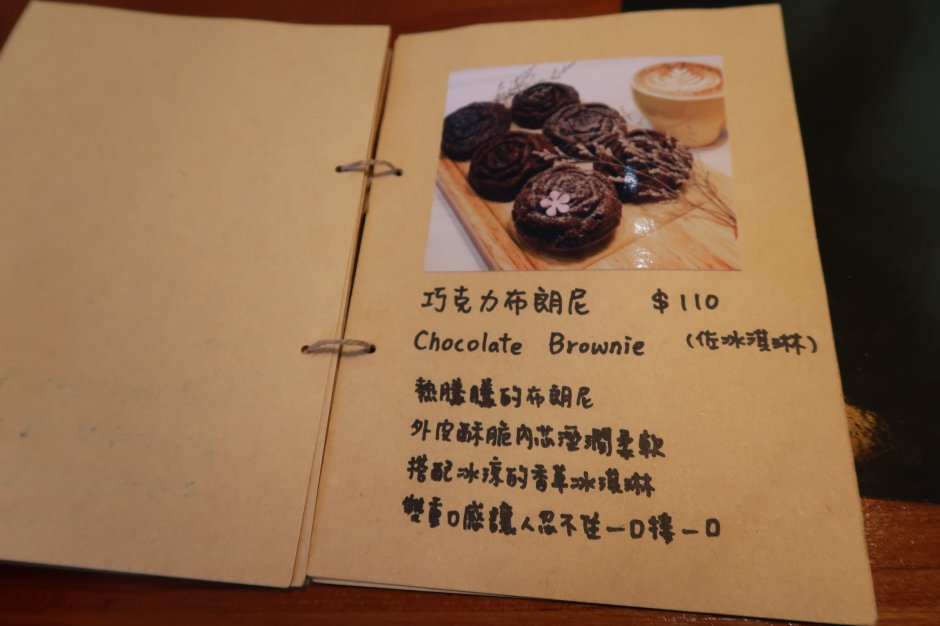 巧克力布朗尼 $110
Chocolate Brownie (佐冰淇淋)
熱騰騰的布朗尼
外皮酥脆內芯溼潤柔軟
搭配冰涼的香草冰淇淋
雙重口感讓人忍不住一口接一口